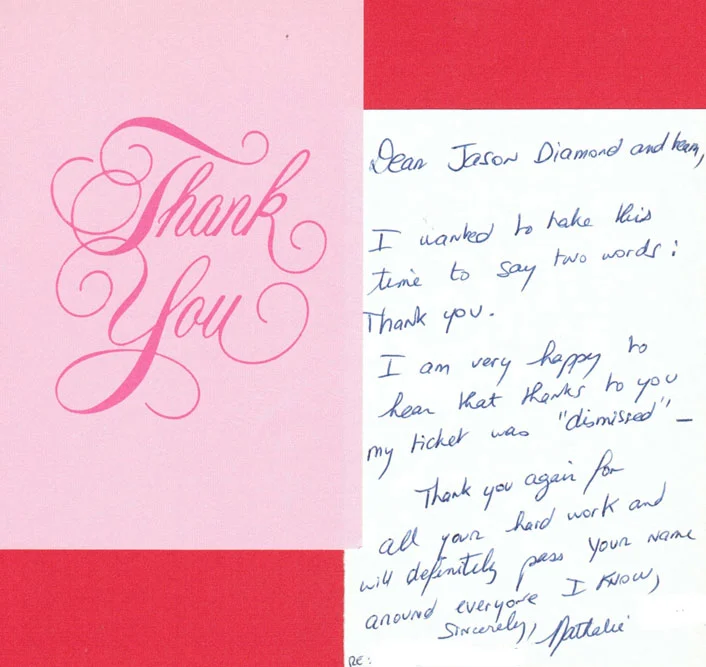 Thank
You
Dear Jason Diamond and team,
I wanted to take this
time to say two words:
Thank you.
I am very happy to
hear that thanks to you
my ticket was "dismissed" –
Thank you again for
all your hard work and
will definitely pass your name
around everyone I know,
Sincerely, Nathalie
RE: